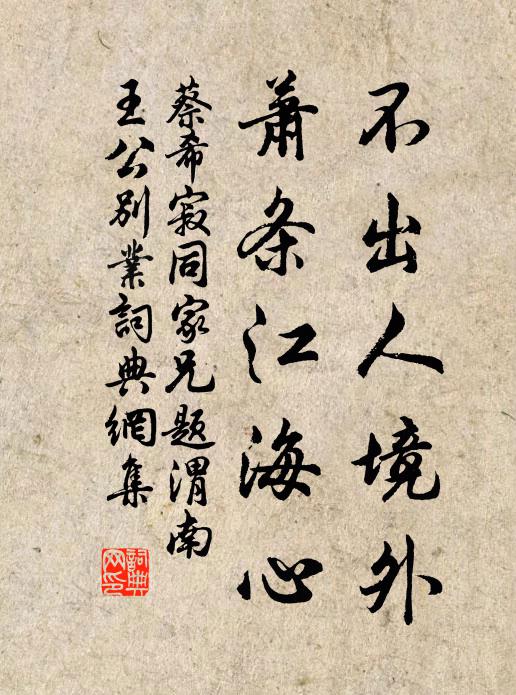 不出人境外
萧条江海心
蔡希寂同家兄题渭南
王公别業詞典網集
詞典
网印